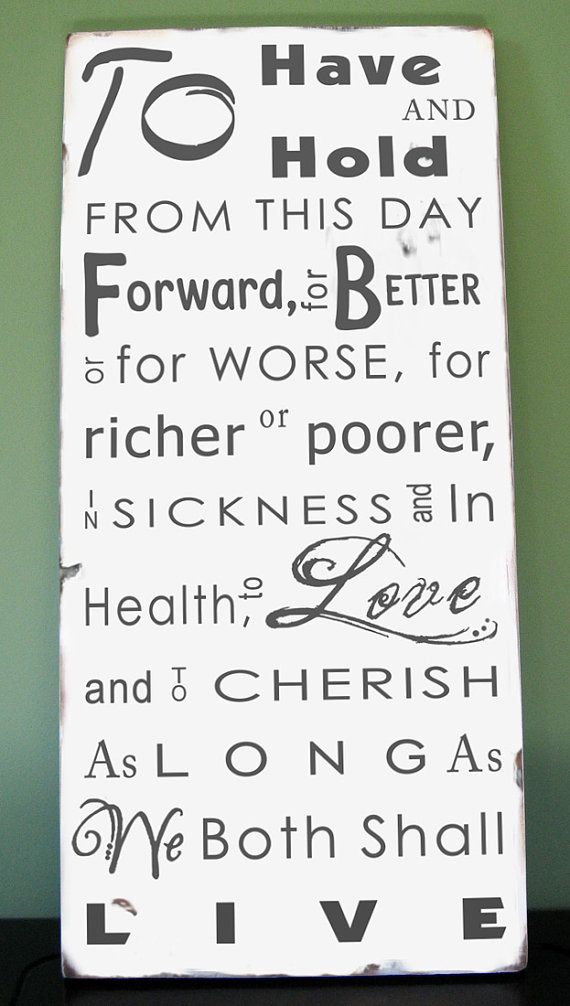 To Have
AND
Hold
FROM THIS DAY
Forward, for BETTER
or for WORSE, for
richer or poorer,
IN SICKNESS and In
Health, to Love
and TO CHERISH
As LONG As
We Both Shall
LIVE